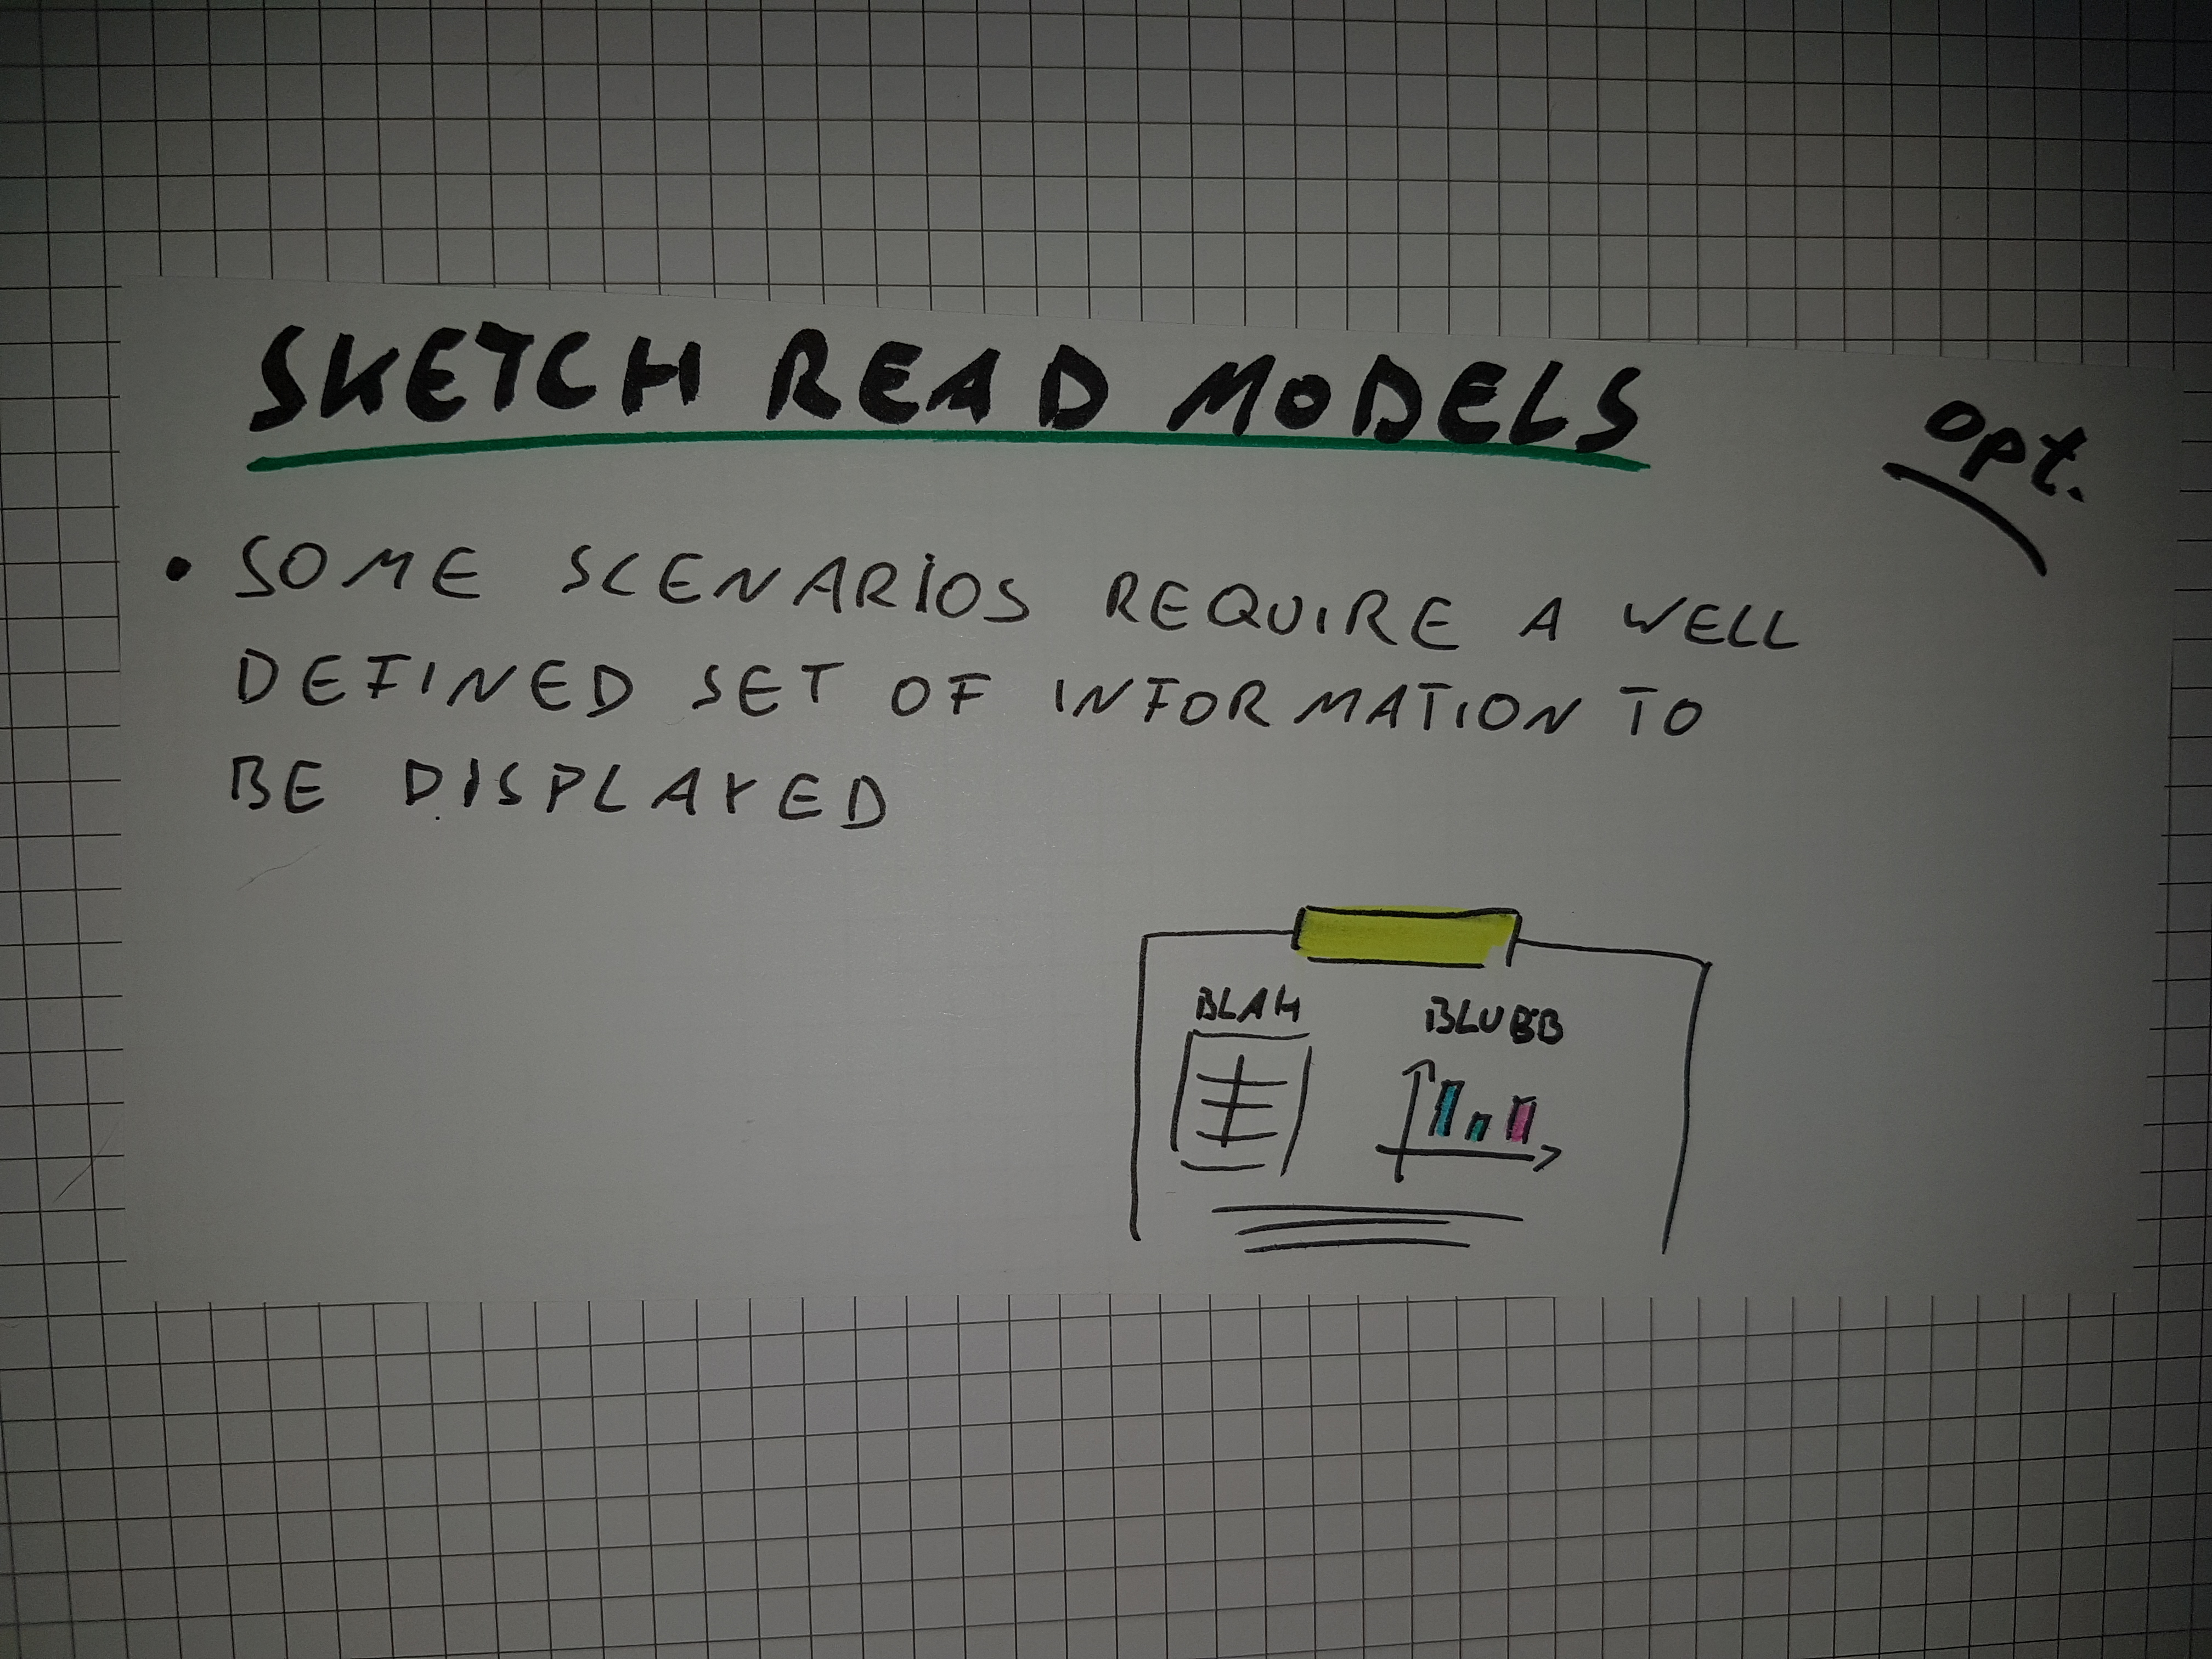 SKETCH READ MODELS
opt.
• SOME SCENARIOS REQUIRE A WELL
DEFINED SET OF INFORMATION TO
BE DISPLAYED
BLAH
BLUBB